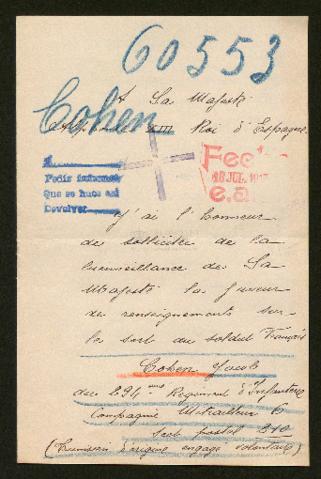 60553
Cohen
A Sa Majesté
Alphonse XIII Roi d'Espagne
Pedir informes
Que se hace asi
Devolver
Fecit
18 JUL. 191
e.a.
J'ai l'honneur
de solliciter de la
bienveillance de Sa
Majesté la faveur
de renseignements sur
le sort du soldat Français
Cohen Jacob
du 294me Regiment d'Infanterie
Compagnie Mitrailleur 6
Sect postal 210
(Tunisien d'origine engagé volontaire)